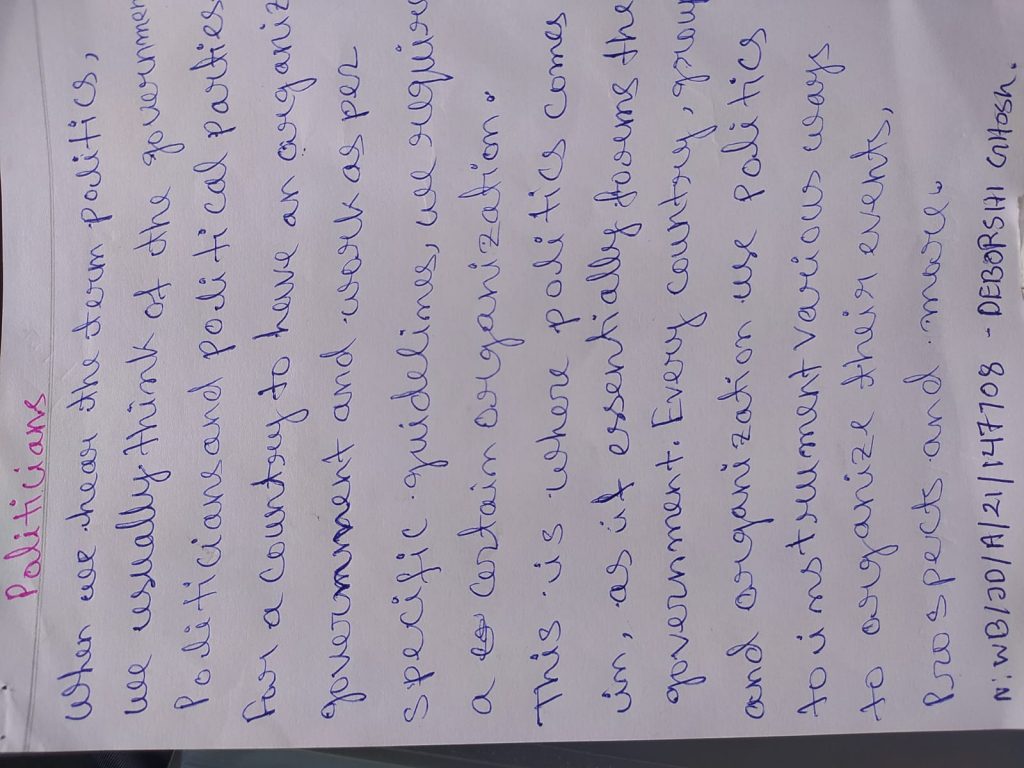 Politicians
When we hear the term politics,
we usually think of the governmen
Politicians and political parties
For a country to have an organiz
government and work as per
specific guidelines, we require
a certain organization.
This is where politics comes
in, as it essentially forms the
government. Every country, group
and organization use politics
to instrument various ways
to organize their events,
Prospects and more.
N: WB/JD/A/21/147708 - DEBOPSHI GHOSH.